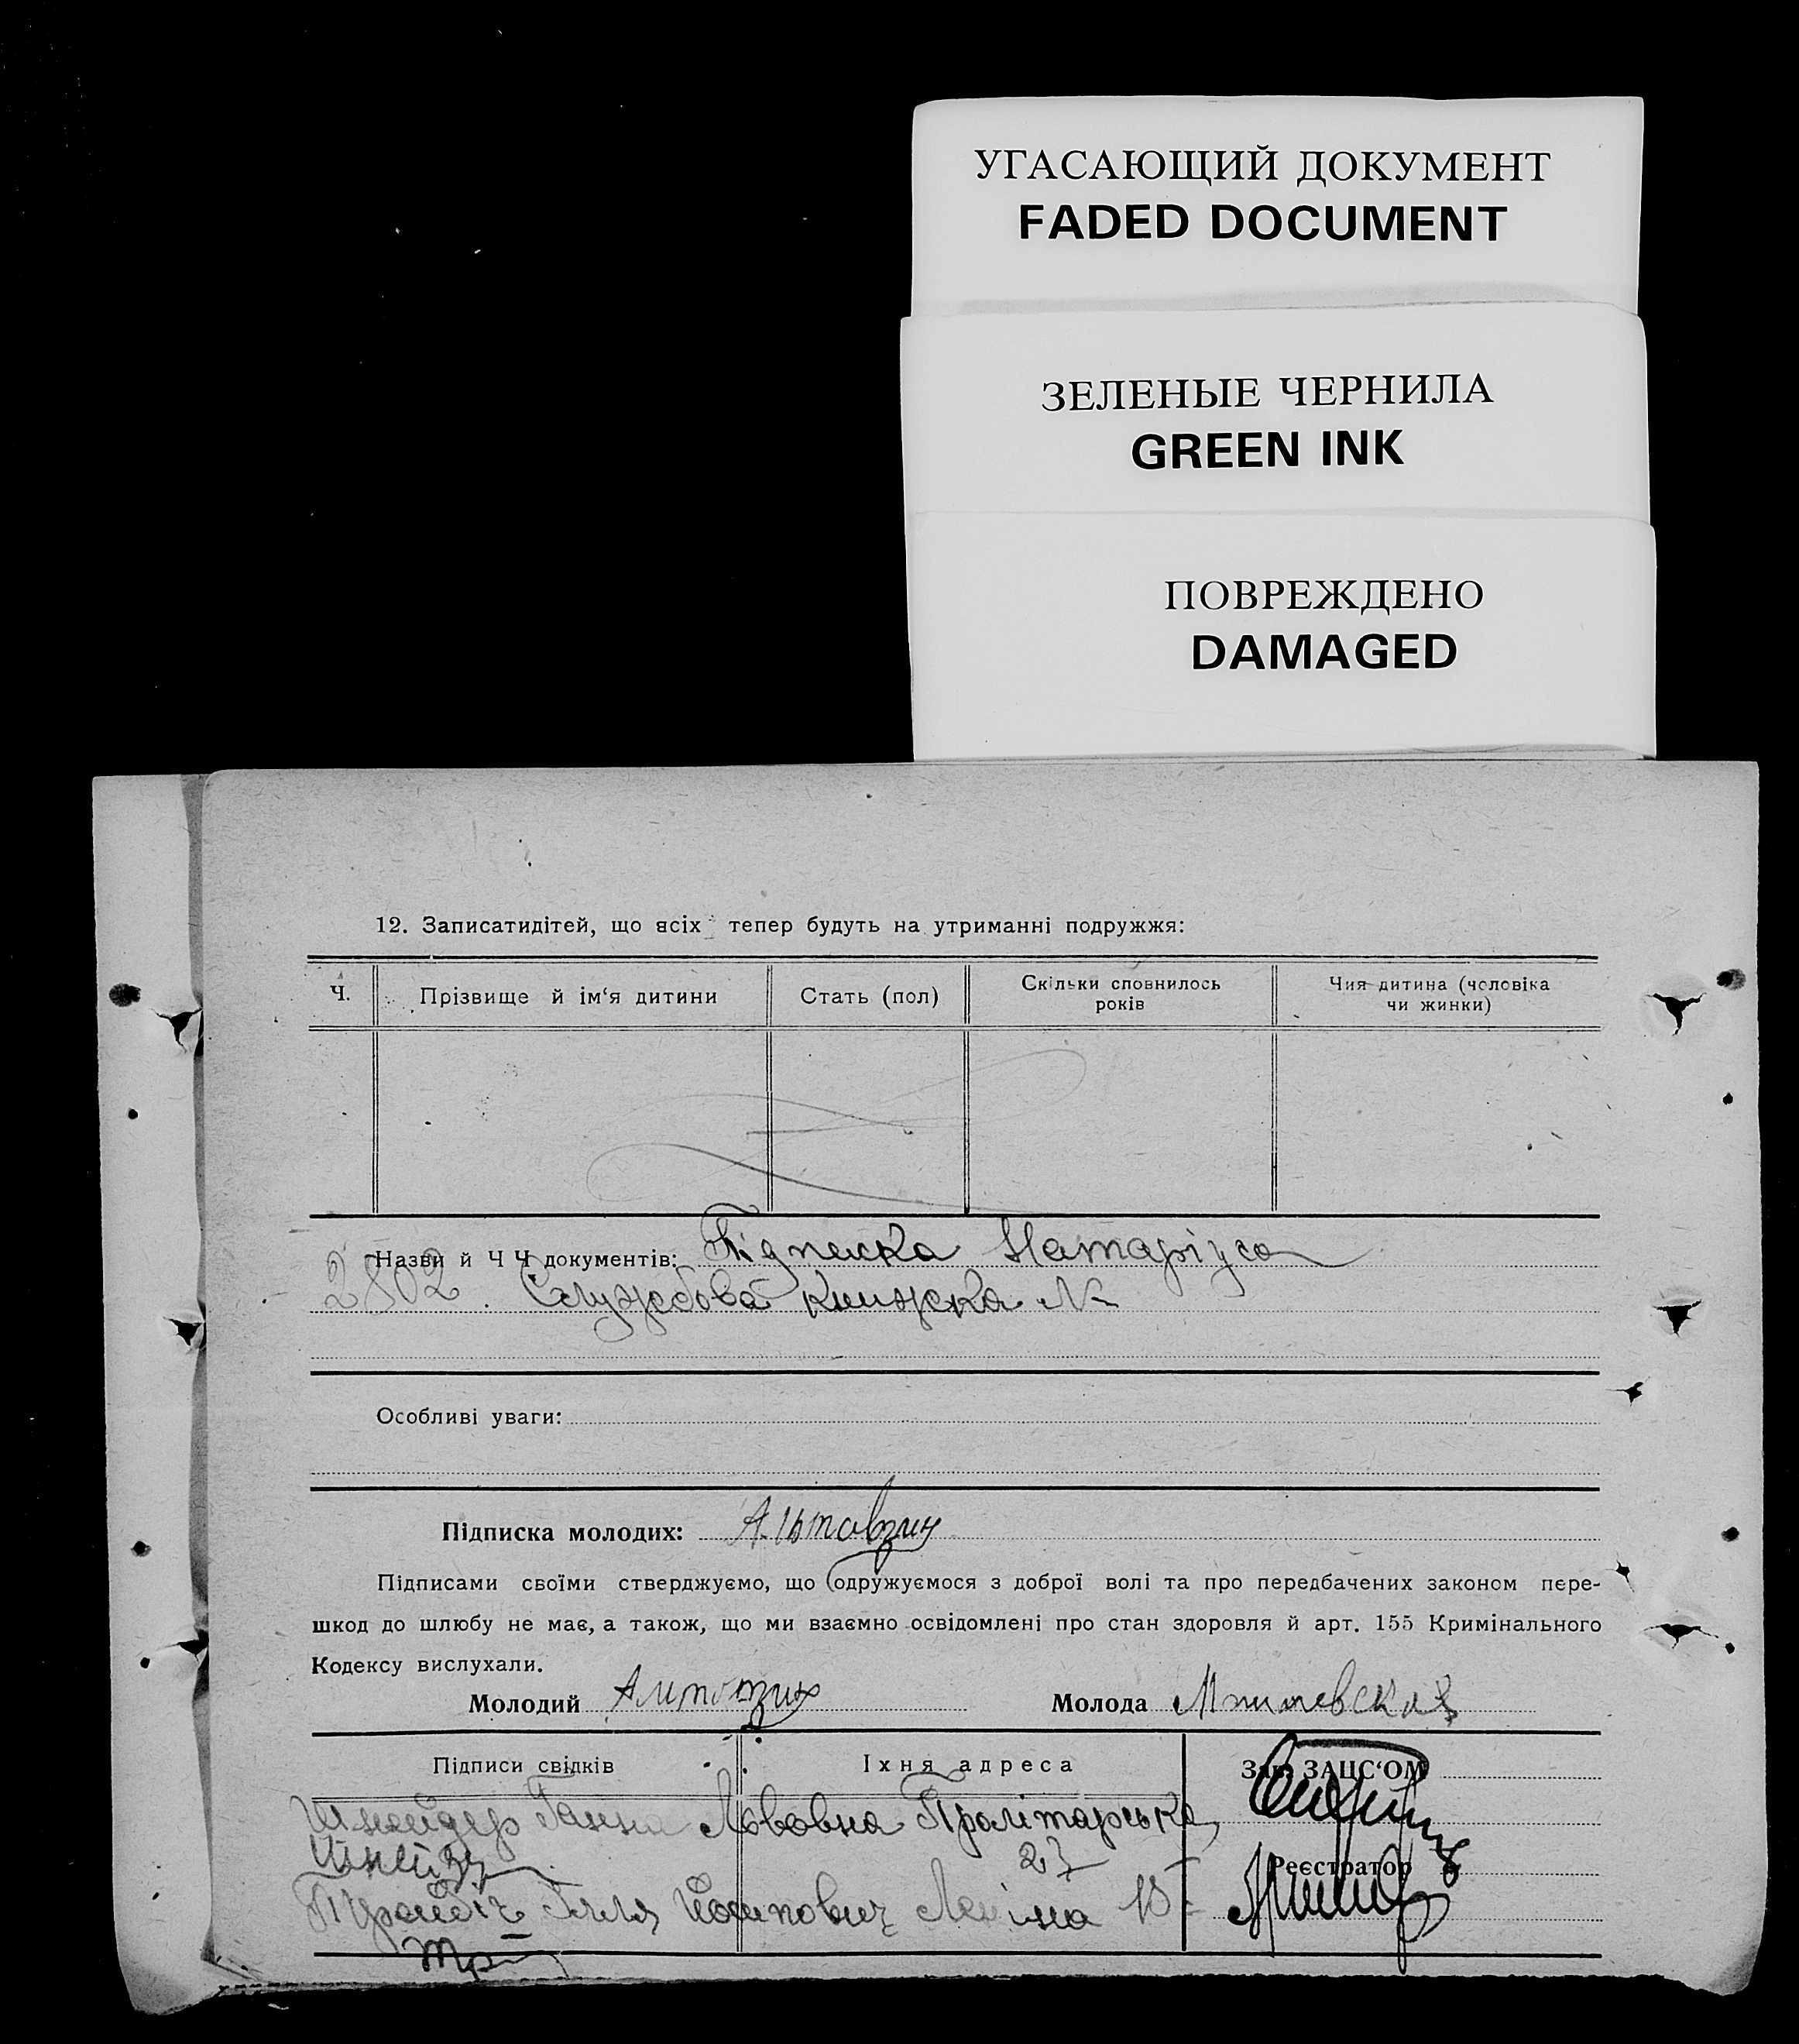 УГАСАЮЩИЙ ДОКУМЕНТ
FADED DOCUMENT
ЗЕЛЕНЫЕ ЧЕРНИЛА
GREEN INK
ПОВРЕЖДЕНО
DAMAGED
12. Записатидітей, що всіх тепер будуть на утриманні подружжя:
Ч.
Прізвище й ім‘я дитини
Стать (пол)
Скільки сповнилось років
Чия дитина (чоловіка чи жинки)
Назви й Ч Ч документів: Підписка Натаріуса
2802. Службова книжка №
Особливі уваги:
Підписка молодих:
Підписами своїми стверджуємо, що одружуємося з доброї волі та про передбачених законом пере-
шкод до шлюбу не має, а також, що ми взаємно освідомлені про стан здоровля й арт. 155 Кримінального
Кодексу вислухали.
Молодий
Молода
Підписи свідків
Їхня адреса
Зав. ЗАЦС‘ОМ
Шнейдер Ганна Львовна Пролітарська
23
Реєстратор
Ілля Йосипович Леніна